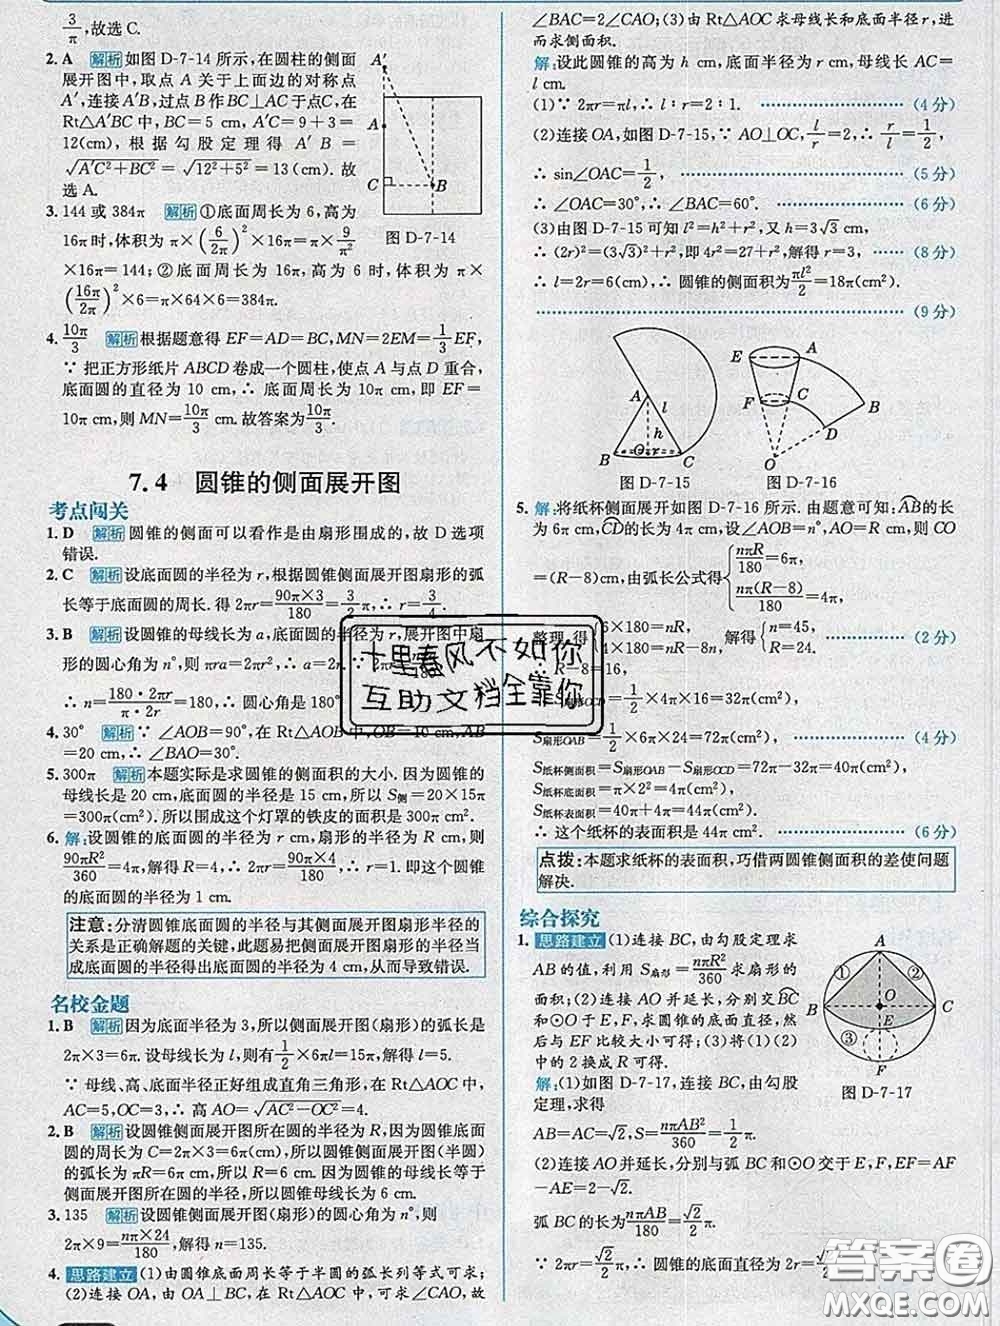 3/π,故选C.
2. A 解析 如图 D-7-14 所示,在圆柱的侧面
展开图中,取点 A 关于上面边的对称点
A′,连接 A′B,过点 B 作 BC⊥AC 于点C,在
Rt△A′BC 中,BC=5 cm,A′C=9+3=
12(cm),根据勾股定理得 A′B=
√(A′C²+BC²)=√(12²+5²)=13(cm). 故
选 A.
A′
A
C
B
图 D-7-14
3. 144 或 384π 解析 ①底面周长为 6,高为
16π时,体积为 π×(6/2π)²×16π=π×9/π²
×16π=144;②底面周长为 16π,高为 6 时,体积为 π×
(16π/2π)²×6=π×64×6=384π.
4. 10π/3 解析 根据题意得 EF=AD=BC,MN=2EM=1/3EF,
∵ 把正方形纸片 ABCD 卷成一个圆柱,使点 A 与点 D 重合,
底面圆的直径为 10 cm,∴ 底面周长为 10π cm,即 EF=
10π cm,则 MN=10π/3 cm. 故答案为10π/3.
7.4 圆锥的侧面展开图
考点闯关
1. D 解析 圆锥的侧面可以看作是由扇形围成的,故 D 选项
错误.
2. C 解析 设底面圆的半径为 r,根据圆锥侧面展开图扇形的弧
长等于底面圆的周长. 得 2πr=90π×3/180=3/2π,∴ r=3/4.
3. B 解析 设圆锥的母线长为 a,底面圆的半径为 r,展开图中扇
形的圆心角为 n°,则 πra=2πr²,∴ a=2r.
∴ n=180·2πr/π·2r=180,∴ 圆心角为 180°.
4. 30° 解析 ∵ ∠AOB=90°,在 Rt△AOB 中,OB=10 cm,AB
=20 cm,∴ ∠BAO=30°.
5. 300π 解析 本题实际是求圆锥的侧面积的大小. 因为圆锥的
母线长是 20 cm,底面半径是 15 cm,所以 S侧=20×15π
=300π(cm²). 所以围成这个灯罩的铁皮的面积是 300π cm².
6. 解:设圆锥的底面圆的半径为 r cm,扇形的半径为 R cm,则
90πR²/360=4π,解得 R=4,∴ 2πr=90π×4/180,∴ r=1. 即这个圆锥
的底面圆的半径为 1 cm.
注意:分清圆锥底面圆的半径与其侧面展开图扇形半径的
关系是正确解题的关键,此题易把侧面展开图扇形的半径当
成底面圆的半径得出底面圆的半径为 4 cm,从而导致错误.
名校金题
1. B 解析 因为底面半径为 3,所以侧面展开图(扇形)的弧长是
2π×3=6π. 设母线长为 l,则有1/2×6πl=15π,解得 l=5.
∵ 母线、高、底面半径正好组成直角三角形,在 Rt△AOC 中,
AC=5,OC=3,∴ 高 AO=√(AC²−OC²)=4.
2. B 解析 设圆锥侧面展开图所在圆的半径为 R,因为圆锥底面
圆的周长为 C=2π×3=6π(cm),所以圆锥侧面展开图(半圆)
的弧长为 πR=6π cm,所以 R=6 cm. 因为圆锥的母线长等于
侧面展开图所在圆的半径,所以母线长为 6 cm.
3. 135 解析 设圆锥侧面展开图(扇形)的圆心角为 n°,则
2π×9=nπ×24/180,解得 n=135.
4. 思路建立 (1)由圆锥底面周长等于半圆的弧长列等式可求;
(2)连接 OA,由 OA⊥BC,在 Rt△AOC 中,可求∠CAO,故
∠BAC=2∠CAO;(3)由 Rt△AOC 求母线长和底面半径 r,进
而求侧面积.
解:设此圆锥的高为 h cm,底面半径为 r cm,母线长 AC=
l cm.
(1)∵ 2πr=πl,∴ l∶r=2∶1. (4分)
(2)连接 OA,如图 D-7-15,∵ AO⊥OC,l/r=2,∴ r/l=1/2,
∴ sin∠OAC=1/2, (5分)
∴ ∠OAC=30°,∴ ∠BAC=60°. (6分)
(3)由图 D-7-15 可知 l²=h²+r²,又 h=3√3 cm,
∴ (2r)²=(3√3)²+r²,即 4r²=27+r²,解得 r=3, (8分)
∴ l=2r=6(cm),∴ 圆锥的侧面积为πl²/2=18π(cm²).
(9分)
A
l
h
B
O
r
C
图 D-7-15
E
A
F
C
B
D
O
图 D-7-16
5. 解:将纸杯侧面展开如图 D-7-16 所示. 由题意可知:AB的长
为 6π cm,CD的长为 4π cm,设∠AOB=n°,AO=R cm,则 CO
=(R−8)cm,由弧长公式得{nπR/180=6π, nπ(R−8)/180=4π,
整理,得{6×180=nR, 4×180=nR−8n, 解得{n=45, R=24. (2分)
∴ R−8=16,
S扇形OCD=1/2×4π×16=32π(cm²),
S扇形OAB=1/2×6π×24=72π(cm²), (4分)
S纸杯侧面积=S扇形OAB−S扇形OCD=72π−32π=40π(cm²),
S纸杯底面积=π×2²=4π(cm²),
S纸杯表面积=40π+4π=44π(cm²).
∴ 这个纸杯的表面积是 44π cm². (6分)
点拨:本题求纸杯的表面积,巧借两圆锥侧面积的差使问题
解决.
综合探究
1. 思路建立 (1)连接 BC,由勾股定理求
AB 的值,利用 S扇形=nπR²/360求扇形的
面积;(2)连接 AO并延长,分别交BC
和⊙O于E,F,求圆锥的底面直径,然
后与 EF 比较大小可得;(3)将(1)(2)
中的 2 换成 R 可得.
A
①
②
O
B
C
E
③
F
图 D-7-17
解:(1)如图 D-7-17,连接 BC,由勾股
定理,求得
AB=AC=√2,S=nπAB²/360=1/2π.
(2)连接 AO 并延长,分别与弧 BC 和⊙O交于 E,F,EF=AF
−AE=2−√2,
弧 BC 的长为nπAB/180=√2/2π.
∵ 2πr=√2/2π,
十里春风不如你
互助文档全靠你
答案圈
MXQE.COM